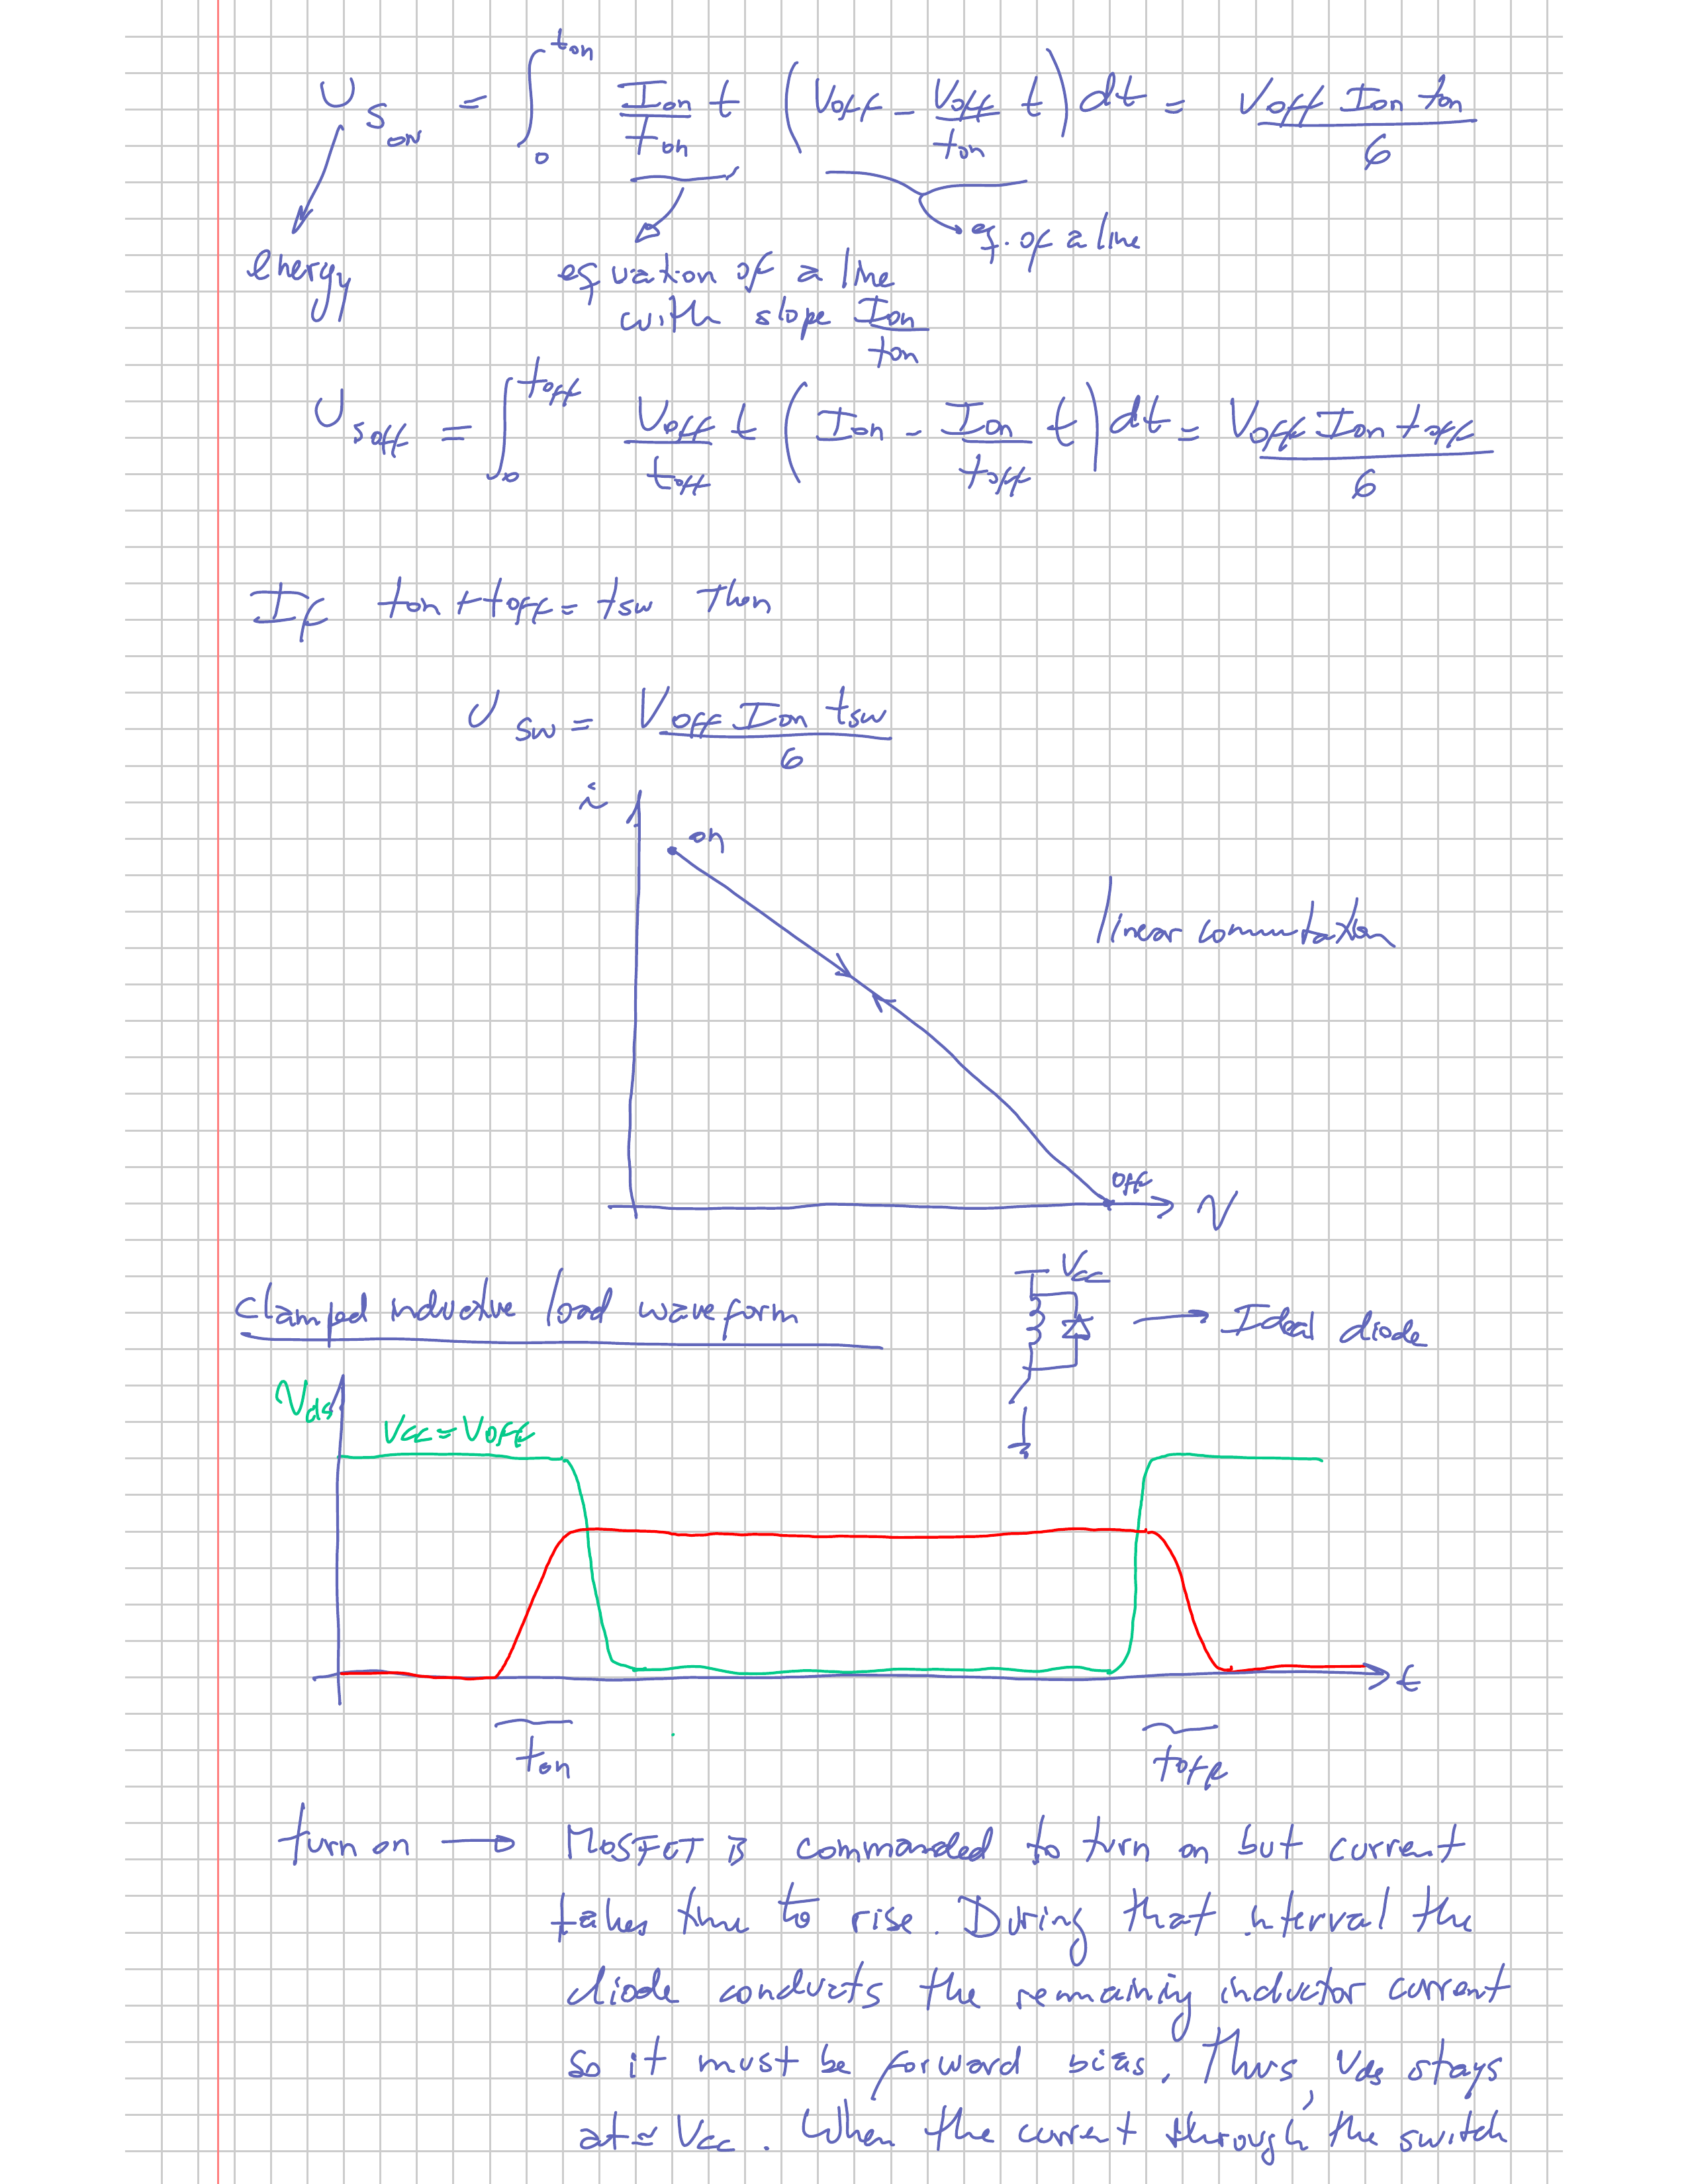 U_Son = ∫_0^ton Ion/ton t (Voff - Voff/ton t) dt = Voff Ion ton / 6
eq. of a line
energy
equation of a line
with slope Ion/ton
U_Soff = ∫_0^toff Voff/toff t (Ion - Ion/toff t) dt = Voff Ion toff / 6
If ton + toff = tsw Then
U_SW = Voff Ion tsw / 6
i
on
linear commutation
off
v
Vcc
clamped inductive load waveform
Ideal diode
Vds
Vcc = Voff
t
ton
toff
turn on → MOSFET is commanded to turn on but current
takes time to rise. During that interval the
diode conducts the remaining inductor current
so it must be forward bias. Thus, Vds stays
at ≈ Vcc. When the current through the switch